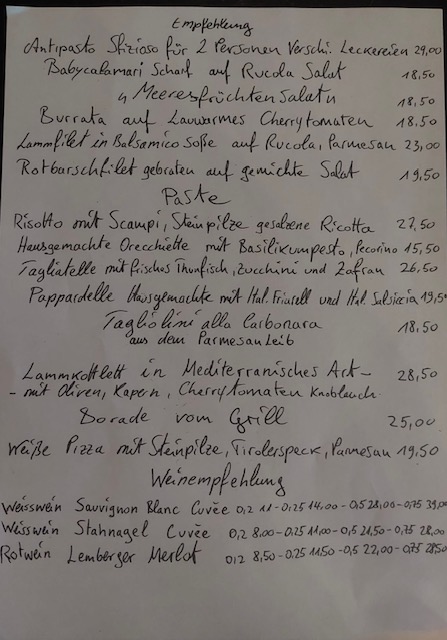 Empfehlung
Antipasto Sfizioso für 2 Personen Versch. Leckereien 29,00
Babycalamari Scharf auf Rucola Salat 18,50
"Meeresfrüchten Salat" 18,50
Burrata auf Lauwarmes Cherrytomaten 18,50
Lammfilet in Balsamico Soße auf Rucola, Parmesan 23,00
Rotbarschfilet gebraten auf gemichte Salat 19,50
Paste
Risotto mit Scampi, Steinpilze gesalzene Ricotta 27,50
Hausgemachte Orecchiette mit Basilikumpesto, Pecorino 15,50
Tagliatelle mit frisches Thunfisch, Zucchini und Zafran 26,50
Pappardelle Hausgemachte mit Ital. Friarell und Ital. Salsiccia 19,50
Tagliolini alla Carbonara 18,50
aus dem Parmesan Leib
Lammkottlett in Mediterranisches Art- 28,50
- mit Oliven, Kapern, Cherrytomaten Knoblauch
Dorade vom Grill 25,00
Weiße Pizza mit Steinpilze, Tirolerspeck, Parmesan 19,50
Weinempfehlung
Weisswein Sauvignon Blanc Cuvèe 0,2 11 - 0,25 14,00 - 0,5 28,00 - 0,75 39,00
Weisswein Stahnagel Cuvèe 0,2 8,00 - 0,25 11,00 - 0,5 21,50 - 0,75 28,00
Rotwein Lemberger Merlot 0,2 8,50 - 0,25 11,50 - 0,5 22,00 - 0,75 28,50